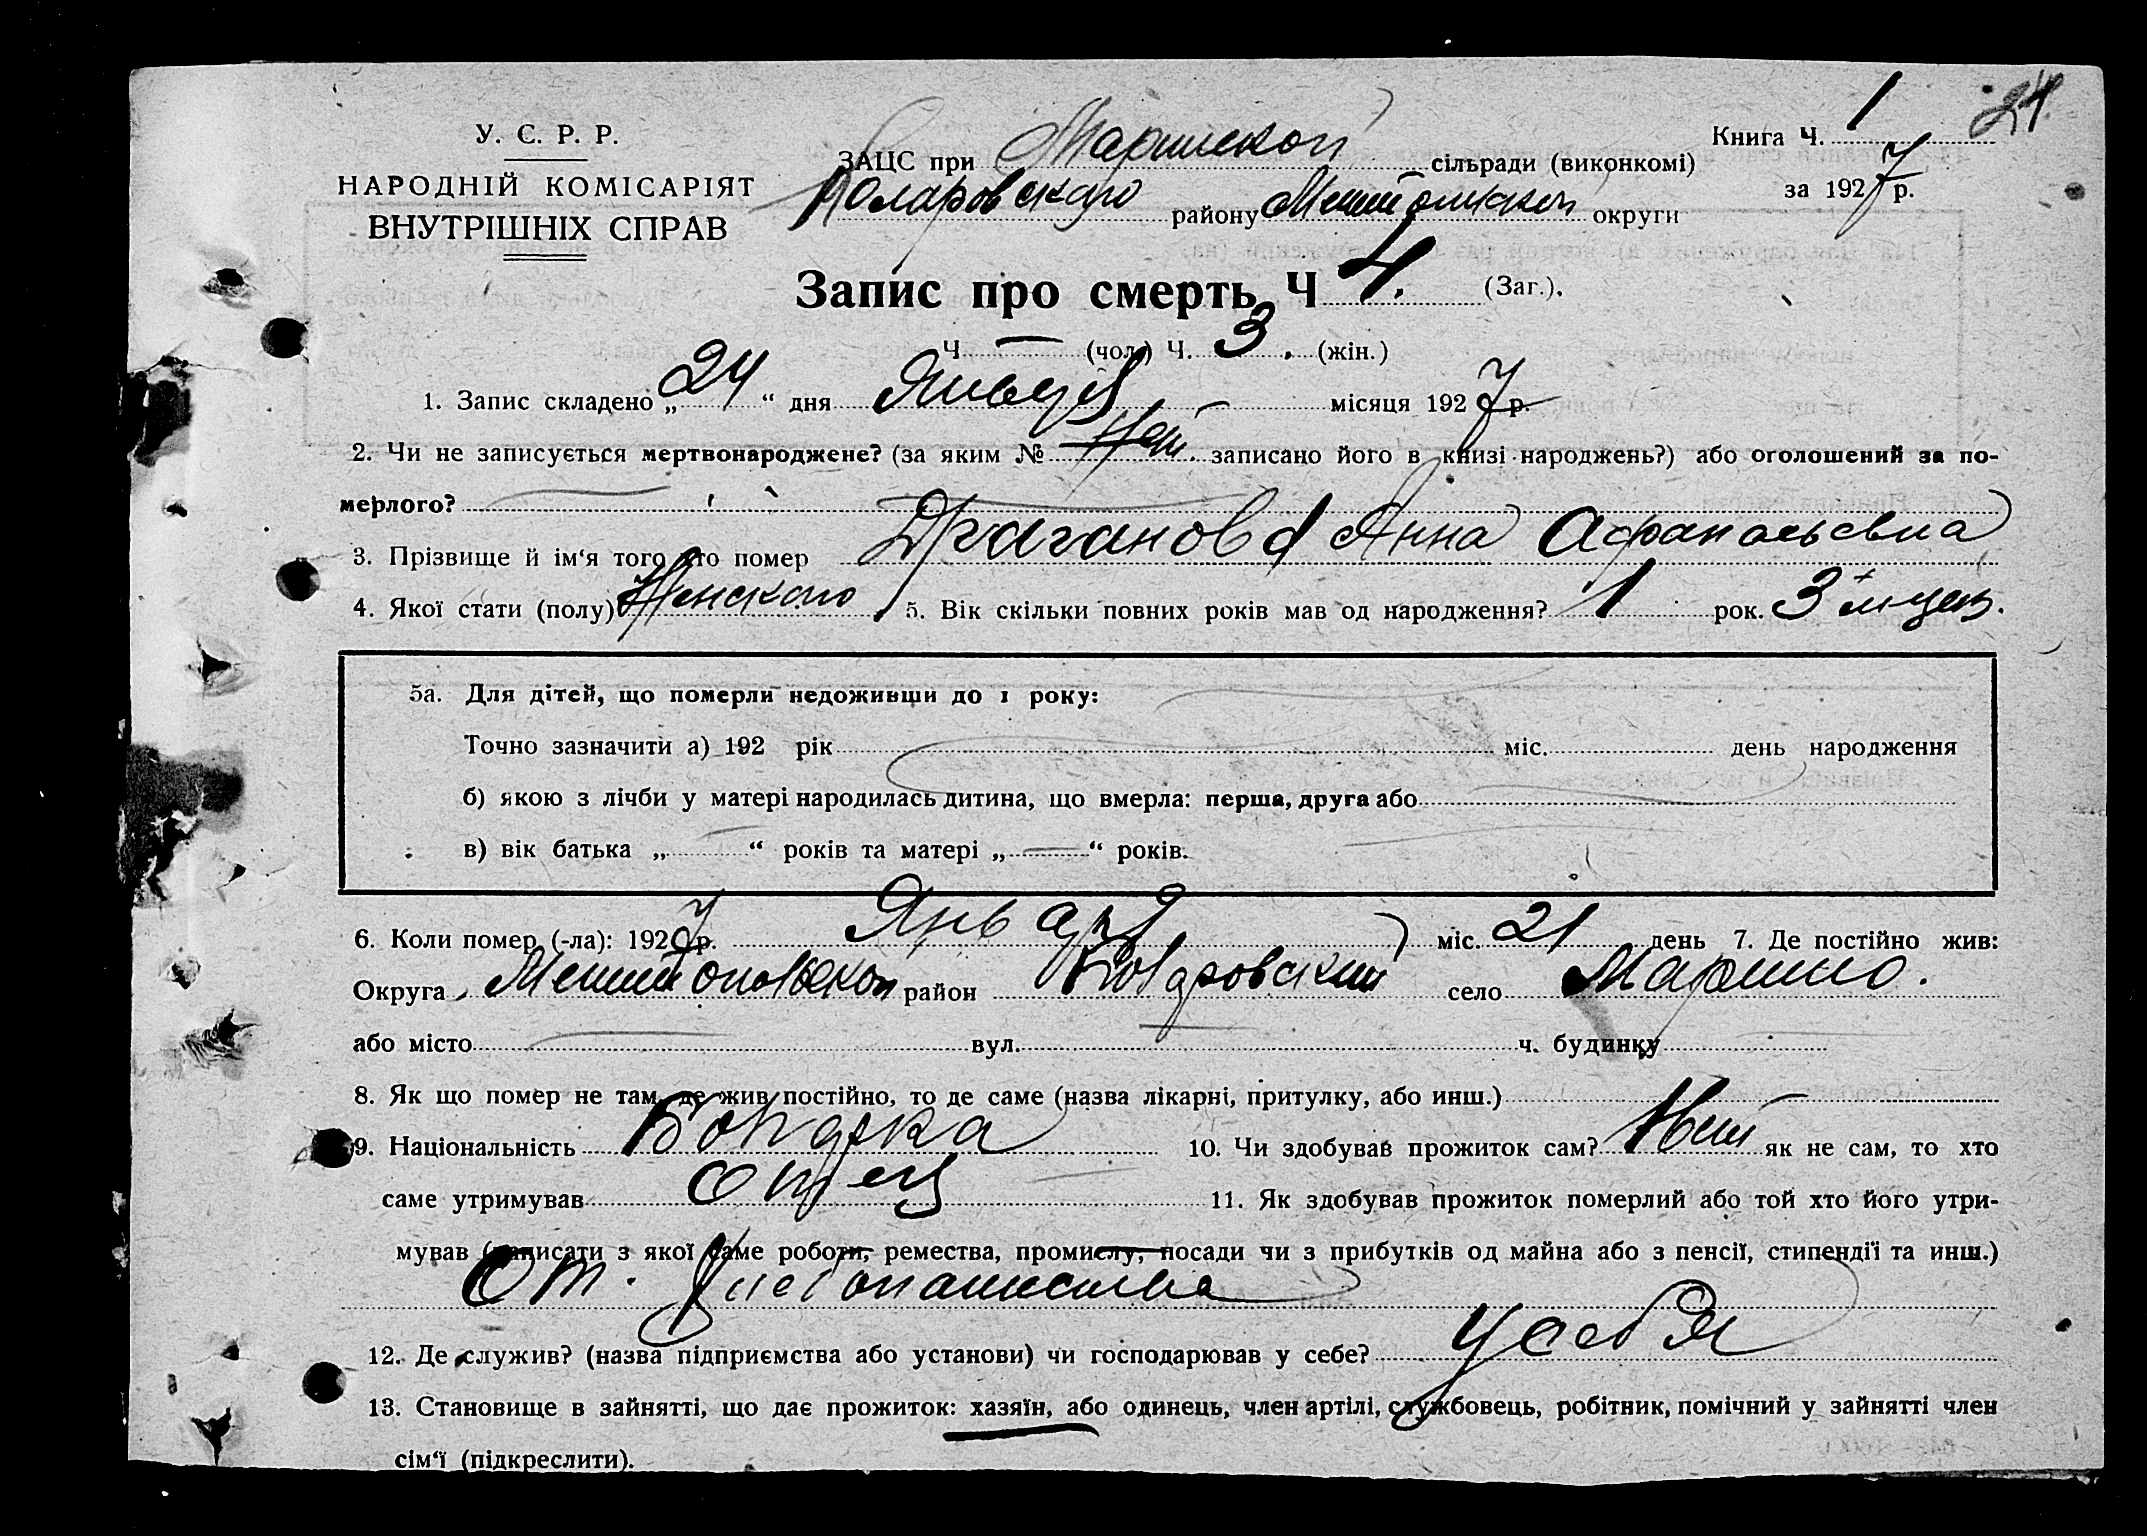 У. С. Р. Р.
НАРОДНІЙ КОМІСАРІЯТ
ВНУТРІШНІХ СПРАВ
Книга Ч. 1 24.
за 1927 р.
ЗАЦС при Маринской сільради (виконкомі)
Коларовского району Мелитопльской округи
Запис про смерть Ч 4. (Заг.).
Ч — (чол.) Ч. 3. (жін.)
1. Запис складено „24“ дня Января місяця 1927 р.
2. Чи не записується мертвонароджене? (за яким № Нет. записано його в книзі народжень?) або оголошений за по-
мерлого?
3. Прізвище й ім‘я того хто помер Драганова Анна Афанасьевна
4. Якої стати (полу) Женского 5. Вік скільки повних років мав од народження? 1 рок. 3 м-цев.
5а. Для дітей, що померли недоживши до 1 року:
Точно зазначити а) 192 рік міс. день народження
б) якою з лічби у матері народилась дитина, що вмерла: перша, друга або
в) вік батька „ “ років та матері „ “ років.
6. Коли помер (-ла): 1927 р. Января міс. 21 день 7. Де постійно жив:
Округа Мелитопольской район село Марино.
або місто вул. ч. будинку
8. Як що помер не там, де жив постійно, то де саме (назва лікарні, притулку, або инш.)
9. Національність Болгарка 10. Чи здобував прожиток сам? Нет як не сам, то хто
саме утримував Отец 11. Як здобував прожиток померлий або той хто його утри-
мував (записати з якої саме роботи, ремества, промислу, посади чи з прибутків од майна або з пенсії, стипендії та инш.)
От. Хлебопашества
12. Де служив? (назва підприємства або установи) чи господарював у себе? У себя
13. Становище в зайнятті, що дає прожиток: хазяїн, або одинець, член артілі, службовець, робітник, помічний у зайнятті член
сім‘ї (підкреслити).